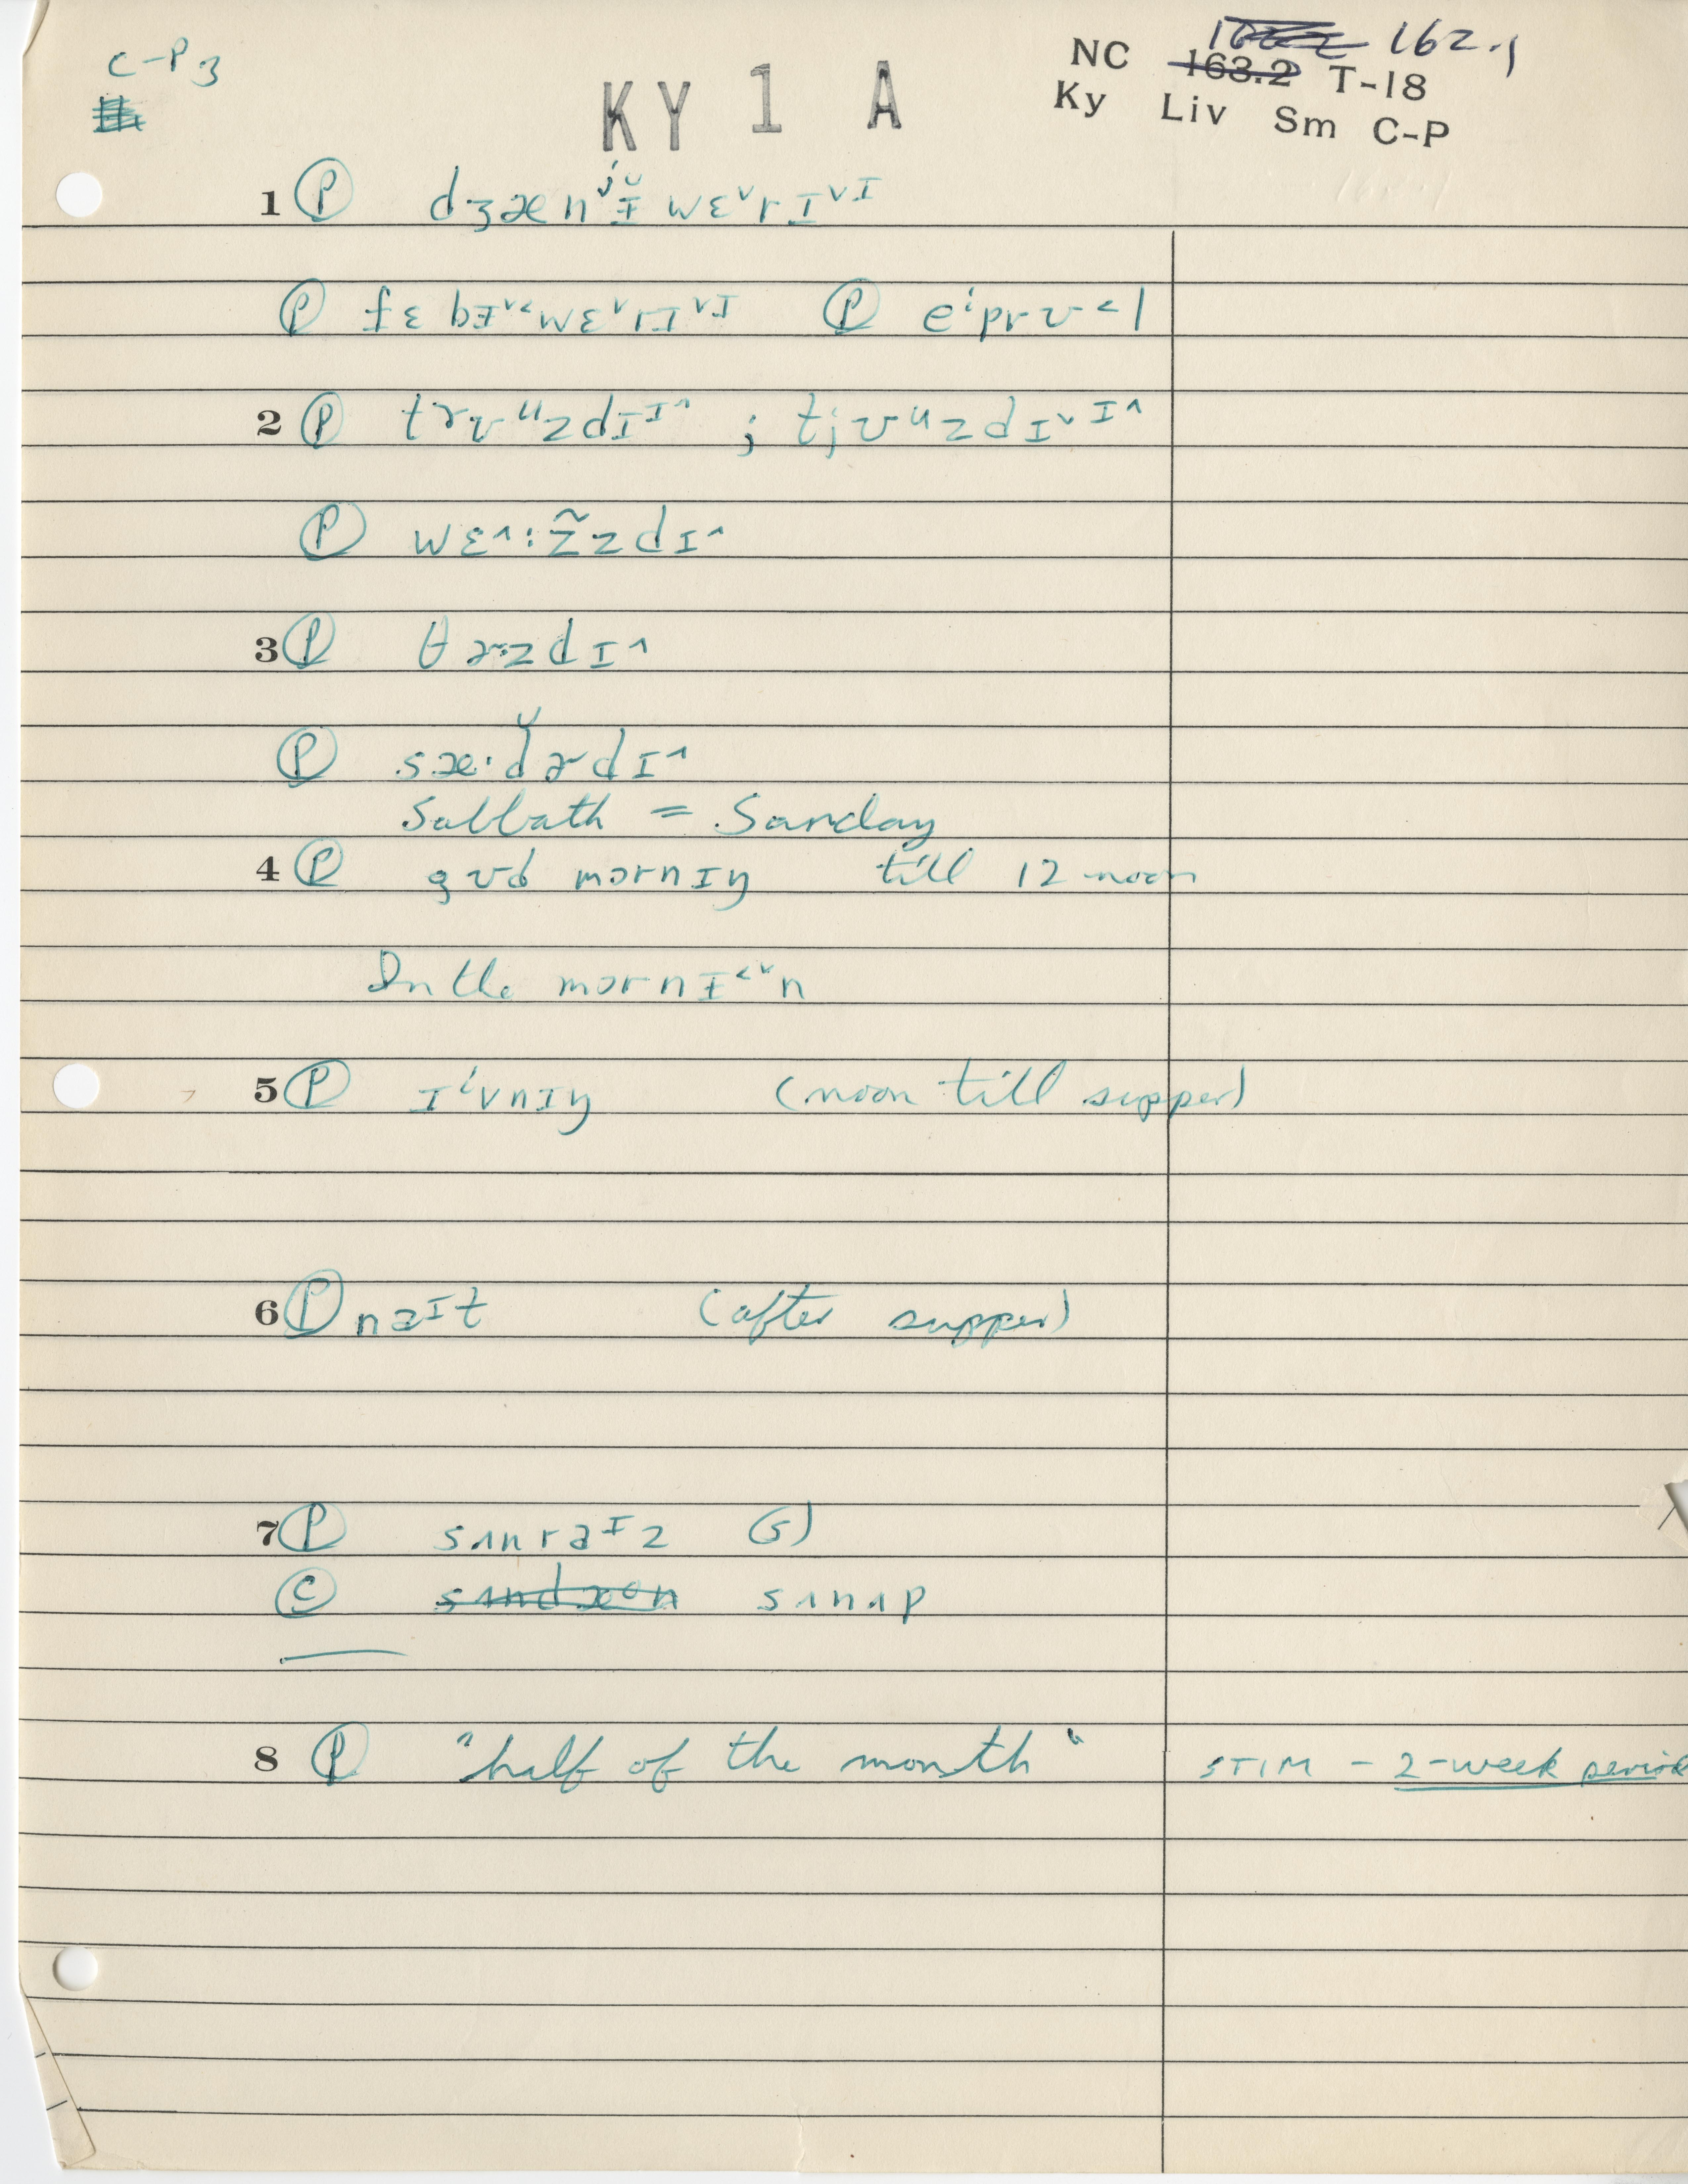 C-P 3
KY 1 A
162.1
NC 163.2 T-18
Ky Liv Sm C-P
1 Ⓟ dʒænʲɪ̵̆wɛ˅rɪ˅ɪ
Ⓟ fɛbɪ̵˅˃wɛ˅rɪ˅ɪ Ⓟ eⁱprʊ˂l
2 Ⓟ tɤʊᵘzdɪᴵ˄ ; tjʊᵘzdɪ˅ᴵ˄
Ⓟ wɛ˄:z̃zdɪ˄
3 Ⓟ θɚ·zdɪ˄
Ⓟ sæ·d̆ɚdɪ˄
Sabbath = Sunday
4 Ⓟ gʊd mɔrnɪŋ till 12 noon
In the mɔrnɪ̵˂˅n
5 Ⓟ ɪⁱvnɪŋ (noon till supper)
6 Ⓟ naᴵt (after supper)
7 Ⓟ sʌnraᶧz (s)
Ⓒ sʌndæᵒn sʌnʌp
8 Ⓟ "half of the month" STIM - 2-week period